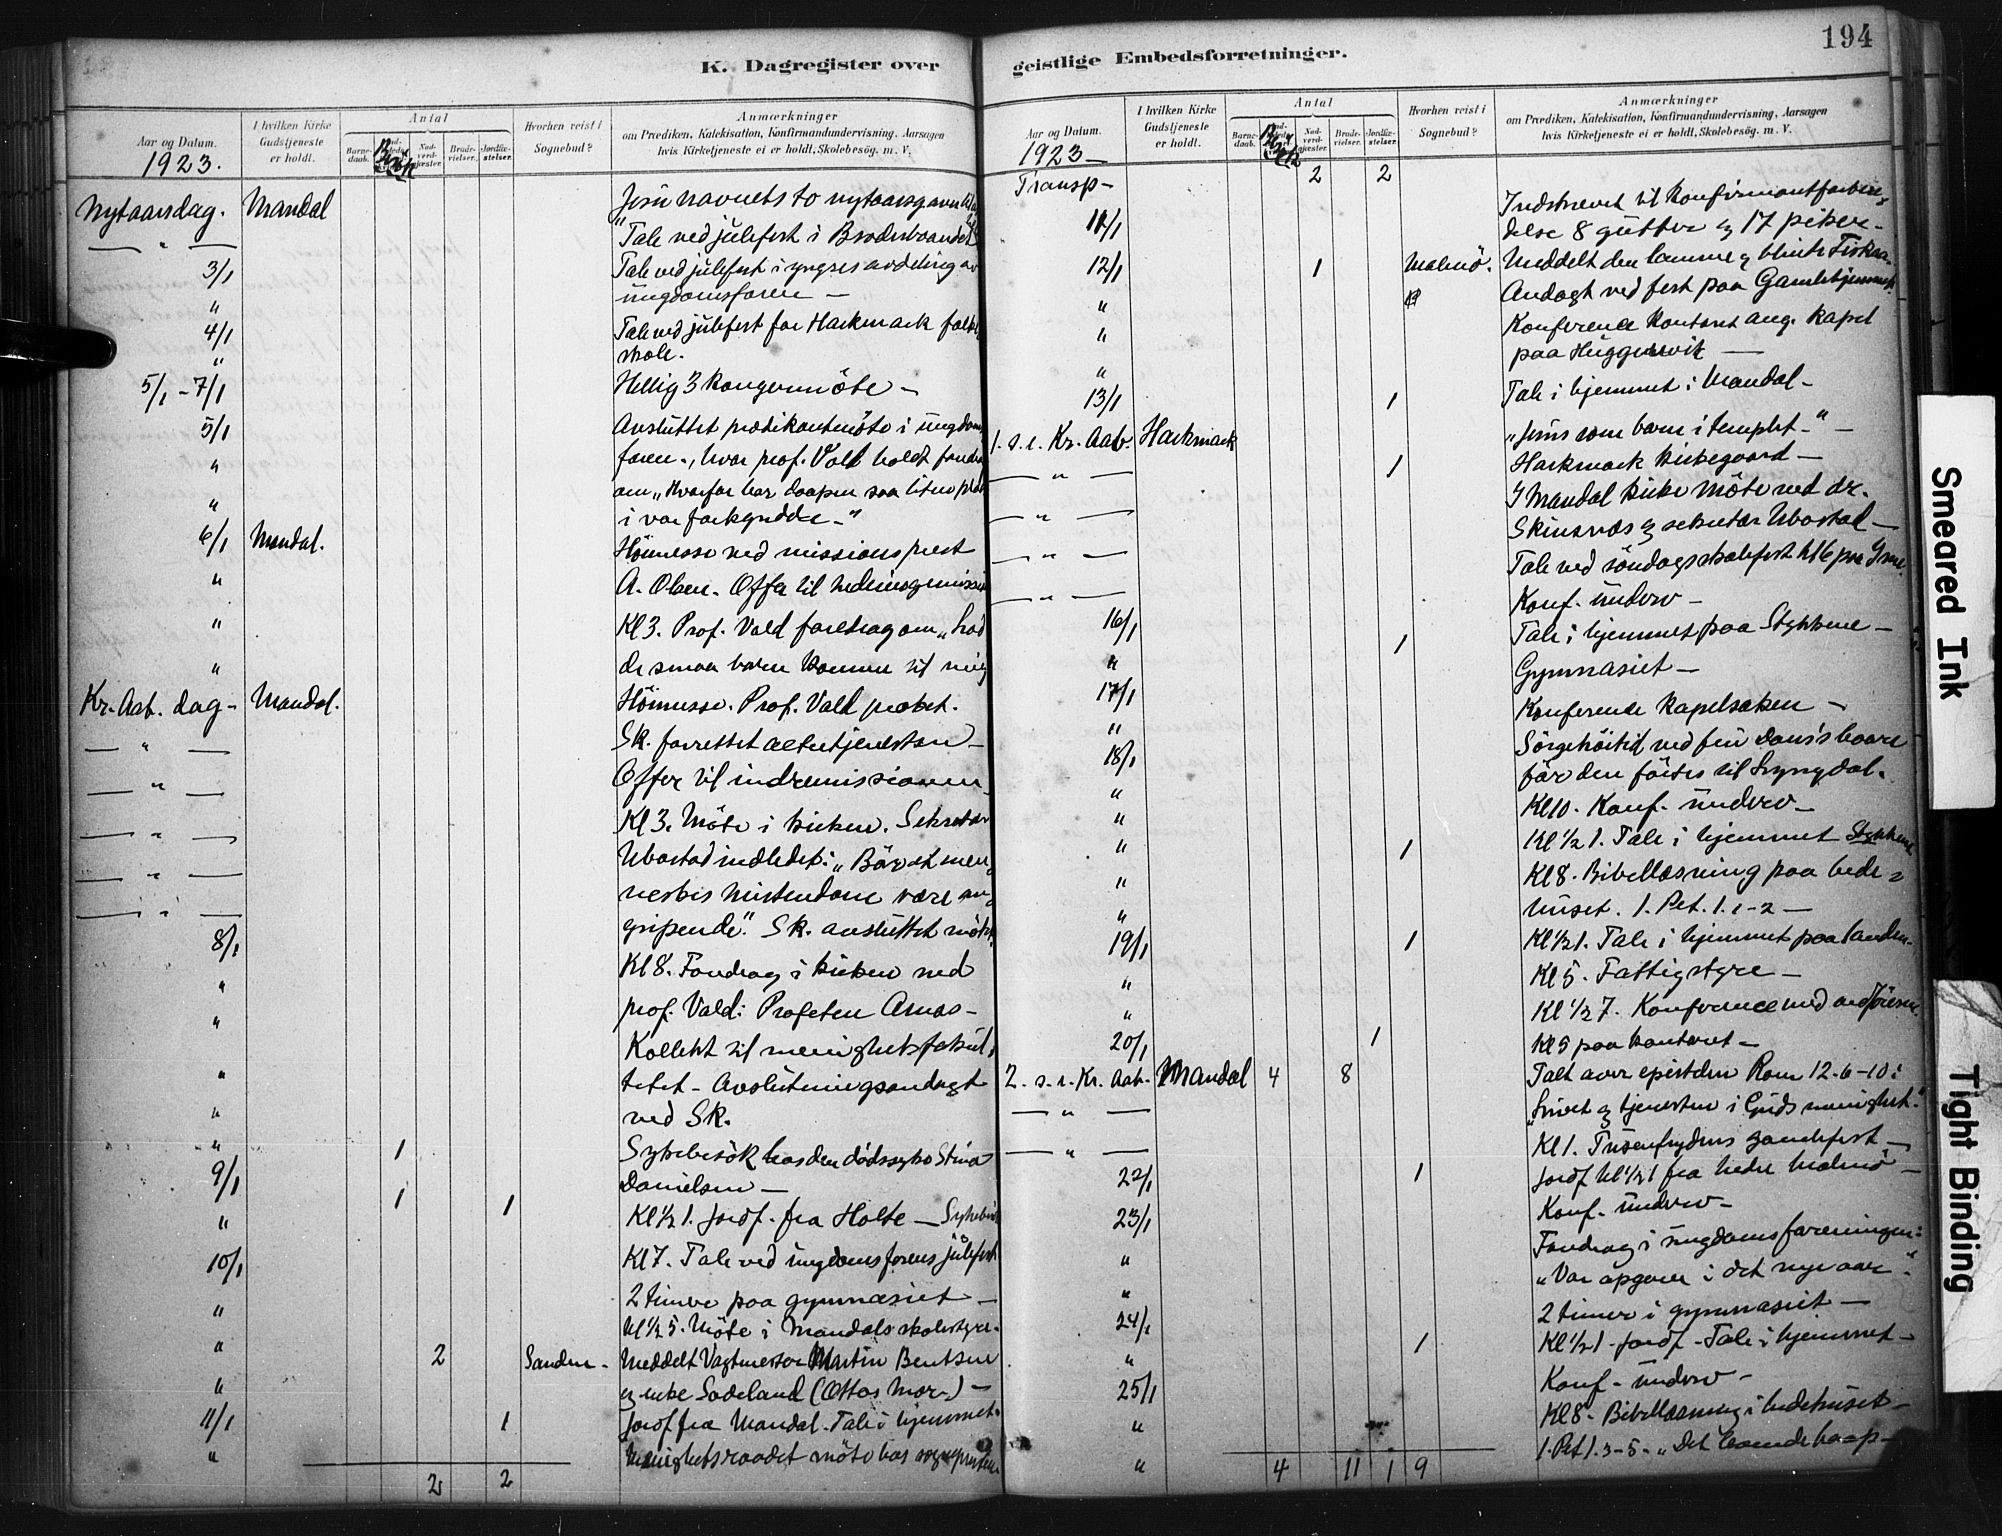 194
K. Dagregister over
geistlige Embedsforretninger.
Aar og Datum.
1923.
I hvilken Kirke Gudstjeneste er holdt.
Antal
Barnedaab.
Nadverdgjester.
Brudevielser.
Jordfæstelser.
Hvorhen reist i Sognebud?
Anmærkninger
om Prædiken, Katekisation, Konfirmandundervisning, Aarsagen
hvis Kirketjeneste ei er holdt, Skolebesøg. m. V.
Nytaarsdag. Mandal
Jesu navnets to nytaarsgaver
— " — "Tale ved julefest i Broderbaandet
3/1 Tale ved julefest i yngres avdeling av
ungdomsforen —
"
4/1 Tale ved julefest for Harkmark folke
skole.
"
5/1 - 7/1 Hellig 3 kongermöte —
5/1 Avsluttet predikantmöte i ungdoms
" foren., hvor prof. Vold holdt foredrag
om "Hvorfor har daapen saa liten plads
" i vor forkyndelse -"
6/1 Mandal. Höimesse ved missionsprest
" A. Olsen. Offer til hedningemission
" Kl 3. Prof. Vold foredrag om "Lad
" de smaa barn komme til mig
Kr. Aab. dag - Mandal. Höimesse. Prof. Vold præket.
— " — Sk. forrettet altertjenesten —
Offer til indremissionen —
— " — Kl 3. Möte i kirken. Sekretær
— " — Ubostad indledet: "Bör et men-
— " — neskes kristendom være an-
— " — gripende." Sk. avsluttet mötet.
8/1 Kl 8. Foredrag i kirken ved
" prof. Vold: Profeten Amos —
" Kollekt til menighetsfakul-
" tetet - Avslutningsandagt
" ved Sk.
" 1 Sykebesök hos den dödssyke Stina
9/1 Danielsen —
" 1 1 Kl 1/2 1. Jordf. fra Holte — Sykebesök
10/1 Kl 7. Tale ved ungdomsforens julefest
2 timer paa gymnasiet —
" Kl 1/2 5. Möte i Mandals skolestyre.
" 2 Sanden - Meddelt Vagtmester Martin Bentsen
" og enke Sodeland (Ottos Mor-) —
11/1 1 Jordf fra Mandal - Tale i hjemmet.
" Menighetsraadet möte hos sognepresten
2 2
Aar og Datum.
1923 —
I hvilken Kirke Gudstjeneste er holdt.
Antal
Barnedaab.
Nadverdgjester.
Brudevielser.
Jordfæstelser.
Hvorhen reist i Sognebud?
Anmærkninger
om Prædiken, Katekisation, Konfirmandundervisning, Aarsagen
hvis Kirketjeneste ei er holdt, Skolebesøg. m. V.
Transp - 2 2
11/1 Indskrevet til konfirmantforbere-
delse 8 gutter og 17 piker.
12/1 1 Malmö. Meddelt den lamme og blinde
" Andagt ved fest paa Gamlehjemmet.
" Konference kontoret ang. kapel
paa Huggersvik —
"
13/1 1 Tale i hjemmet i Mandal —
1. s. e. Kr. Aab. Harkmark "Jesus som barn i templet -" —
— " — 1 Harkmark kirkegaard —
— " — I Mandal kirke möte ved dr.
Skinsnæs og sekretær Ubostad —
— " — Tale ved söndagsskolefest kl 6 paa
— " — Konf. underv —
16/1 1 Tale i hjemmet paa Stykkene —
" Gymnasiet —
17/1 Konference kapelsaken —
" Sörgehöitid ved fru
18/1 för den förtes til Lyngdal.
" Kl 10. Konf. underv —
" 1 Kl 1/2 1. Tale i hjemmet Stykkene
" Kl 8. Bibellæsning paa bede-
" huset. 1. Pet. 1. 1-2 —
19/1 1 Kl 1/2 1. Tale i hjemmet paa Sanden —
" Kl 5. Fattigstyre —
" Kl 1/2 7. Konference med
20/1 1 Kl 5 paa kontoret —
2. s. e. Kr. Aab - Mandal 4 8 Talt over epistelen Rom 12. 6-10:
— " — "Livet og tjenesten i Guds menighet."
— " — Kl 1. Tusenfrydens gamlefest —
22/1 1 Jordf kl 1/2 1 fra Nedre Malmö —
23/1 Konf. underv —
Foredrag i ungdomsforeningen:
" "Vor opgave i det nye aar."
" 2 timer i gymnasiet —
24/1 1 Kl 1/2 1 - Jordf - Tale i hjemmet —
" Konf - underv —
25/1 Kl 8. Bibellæsning i bedehuset —
" 1. Pet 1. 3-5. "Det levende haap —
" 4 11 1 9
Smeared Ink
Tight Binding